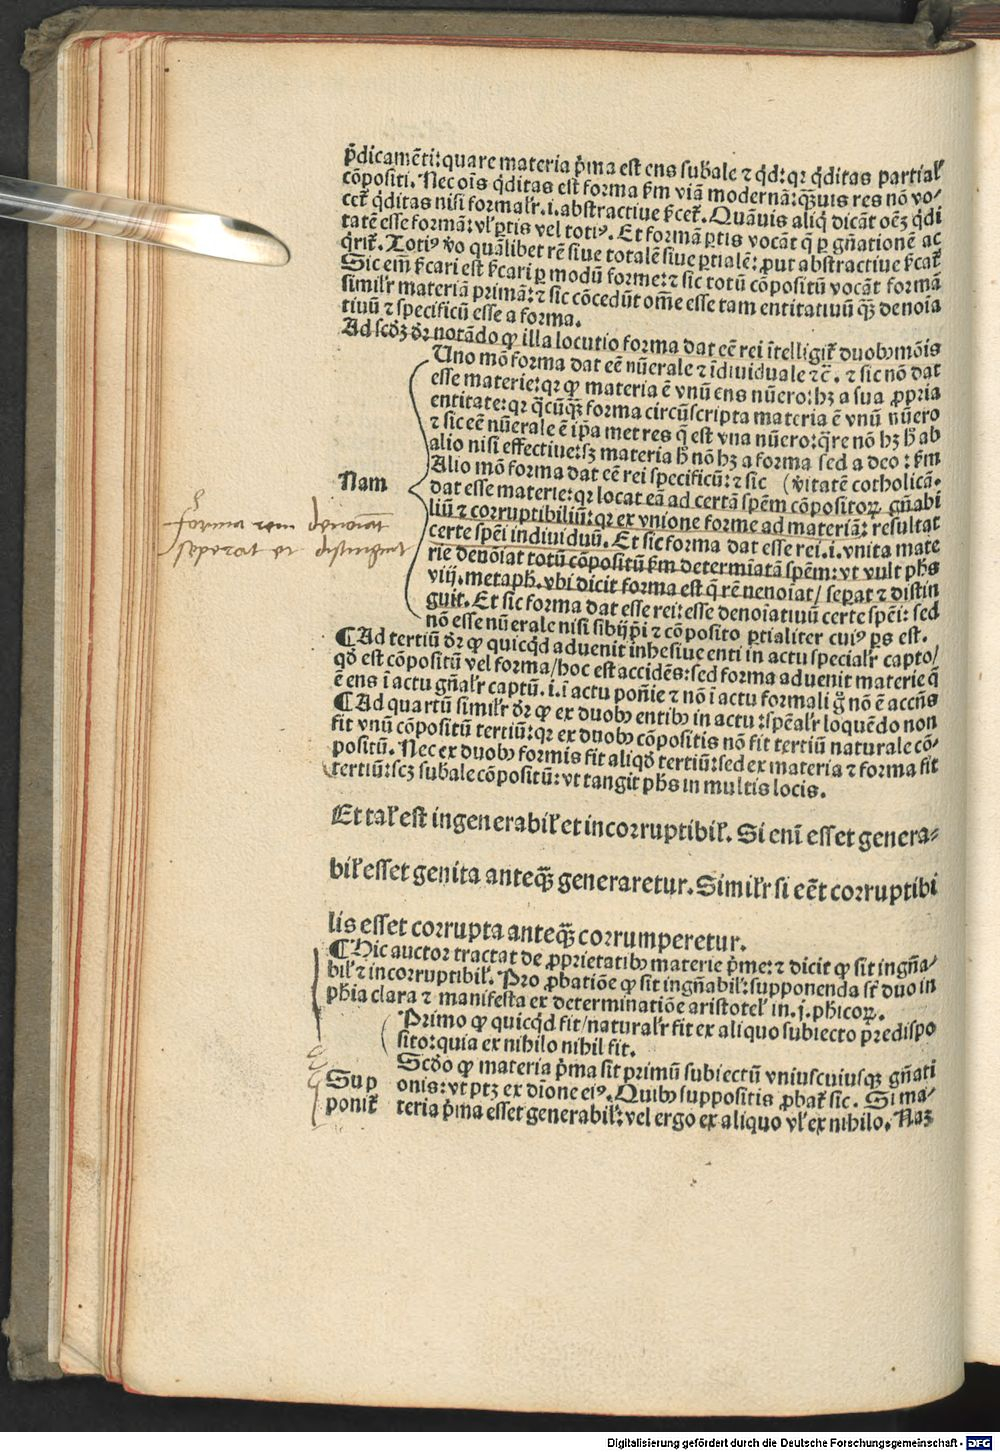 p̄dicamēti: quare materia p̄ma est ens subāle ⁊ q̄d: qr q̄ditas partial'
cōpositi. Nec oīs q̄ditas est forma ẜm viā modernā: q̄ꝫuis res nō vo⸗
cet̄ q̄ditas nisi formalr̄ .i. abstractiue ẜcet̄. Quāuis aliq̄ dicāt oēꝫ q̄di
tatē esse formā: vl' ꝑtis vel totiꝰ. Et formā ꝑtis vocāt q̄ ꝑ gn̄ationē ac
q̄rit̄. Totiꝰ v̄o quālibet rē siue totalē siue ꝑtialē: ꝓut abstractiue ẜcat̄
Sic em̄ ẜcari est ẜcari ꝑ modū forme: ⁊ sic totū cōpositū vocāt formā
similr̄ materiā primā: ⁊ sic cōcedūt om̄e esse tam entitatiuū q̄ꝫ denoīa
tiuū ⁊ specificū esse a forma.
Ad scd̄ꝫ dr̄ notādo ꝙ illa locutio forma dat eē rei ītelligit̄ duobꝰ mōis
Uno mō forma dat eē nūerale ⁊ īdiuiduale ⁊c̄. ⁊ sic nō dat
esse materie: qr ꝙ materia ē vnū ens nūero: hꝫ a sua ꝓpria
entitate: qr q̄cūqꝫ forma circūscripta materia ē vnū nūero
⁊ sic eē nūerale ē ip̄a met res q̄ est vna nūero: q̄re nō hꝫ h̄ ab
alio nisi effectiue: sꝫ materia h̄ nō hꝫ a forma sed a deo: ẜm
Alio mō forma dat eē rei specificū: ⁊ sic (v̄itatē cotholicā.
Nam dat esse materie: qr locat eā ad certā spēm cōpositoꝝ gn̄abi
liū ⁊ corruptibiliū: qr ex vnione forme ad materiā: resultat
certe spēi indiuiduū. Et sic forma dat esse rei .i. vnita mate
rie denoīat totū cōpositū ẜm determīatā spēm: vt vult ph̄s
viij. metaph̄. vbi dicit forma est q̄ rē nenoīat/ seꝑat ⁊ distin
guit. Et sic forma dat esse rei: esse denoīatiuū certe spēi: sed
nō esse nūerale nisi sibijp̄i ⁊ cōposito ꝑtialiter cuiꝰ ꝑs est.
forma rem denoīat
seperat et distinguit
¶Ad tertiū dr̄ ꝙ quicq̄d aduenit inhesiue enti in actu specialr̄ capto/
qd̄ est cōpositū vel forma/hoc est accidēs: sed forma aduenit materie q̄
ē ens ī actu gn̄alr̄ captū .i. ī actu poñie ⁊ nō ī actu formali gͦ nō ē accn̄s
¶Ad quartū similr̄ dr̄ ꝙ ex duobꝰ entibꝰ in actu: spēalr̄ loquēdo non
fit vnū cōpositū tertiū: qr ex duobꝰ cōpositis nō fit tertiū naturale cō⸗
positū. Nec ex duobꝰ formis fit aliqd̄ tertiū: sed ex materia ⁊ forma fit
tertiū: scꝫ subāle cōpositū: vt tangit ph̄s in multis locis.
Et tal' est ingenerabil' et incorruptibil'. Si enī esset genera⸗
bil' esset genita anteq̄ꝫ generaretur. Similr̄ si eēt corruptibi
lis esset corrupta anteq̄ꝫ corrumperetur.
¶Hic auctor tractat de ꝓprietatibꝰ materie p̄me: ⁊ dicit ꝙ sit ingn̄a⸗
bil' ⁊ incorruptibil'. Pro ꝓbatiōe ꝙ sit ingn̄abil': supponenda sr̄ duo in
ph̄ia clara ⁊ manifesta ex determinatiōe aristotel' in .j. ph̄icoꝝ.
Primo ꝙ quicq̄d fit/naturalr̄ fit ex aliquo subiecto p̄redispo
sito: quia ex nihilo nihil fit.
Scd̄o ꝙ materia p̄ma sit primū subiectū vniuscuiusqꝫ gn̄ati
Sup onis: vt ptꝫ ex dīone eiꝰ. Quibꝰ suppositis ꝓbat̄ sic. Si ma⸗
ponit̄ teria p̄ma esset generabil': vel ergo ex aliquo vl' ex nihilo. Naꝫ
Digitalisierung gefördert durch die Deutsche Forschungsgemeinschaft - DFG